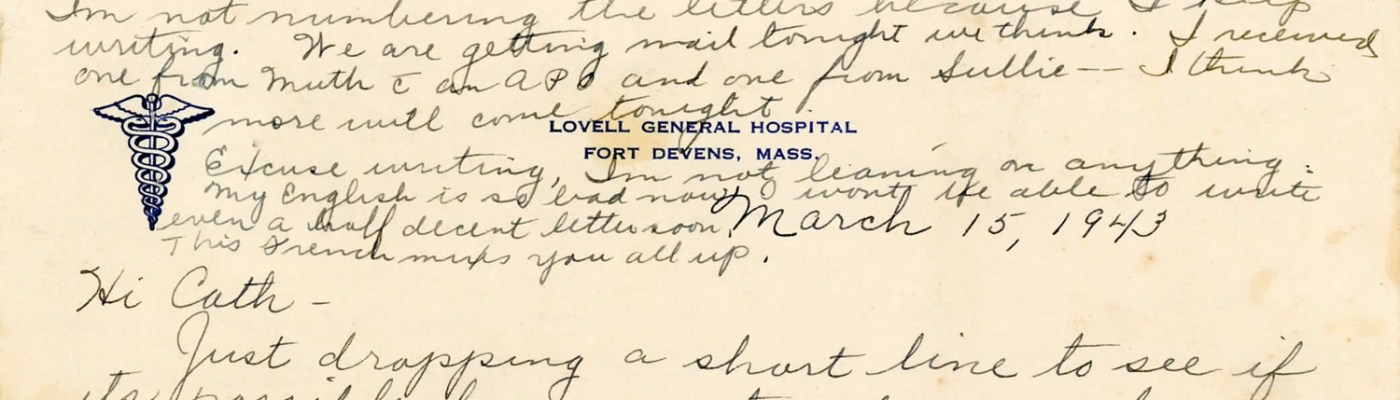 Im not numbering the letters because I keep
writing. We are getting mail tonight we think. I received
one from Muth c an APO and one from Sullie -- I think
more will come tonight.
LOVELL GENERAL HOSPITAL
FORT DEVENS, MASS.
Excuse writing, Im not leaning on anything.
My English is so bad now I wont be able to write
even a half decent letter soon.
This French muxs you all up.
March 15, 1943
Hi Cath -
Just dropping a short line to see if
its